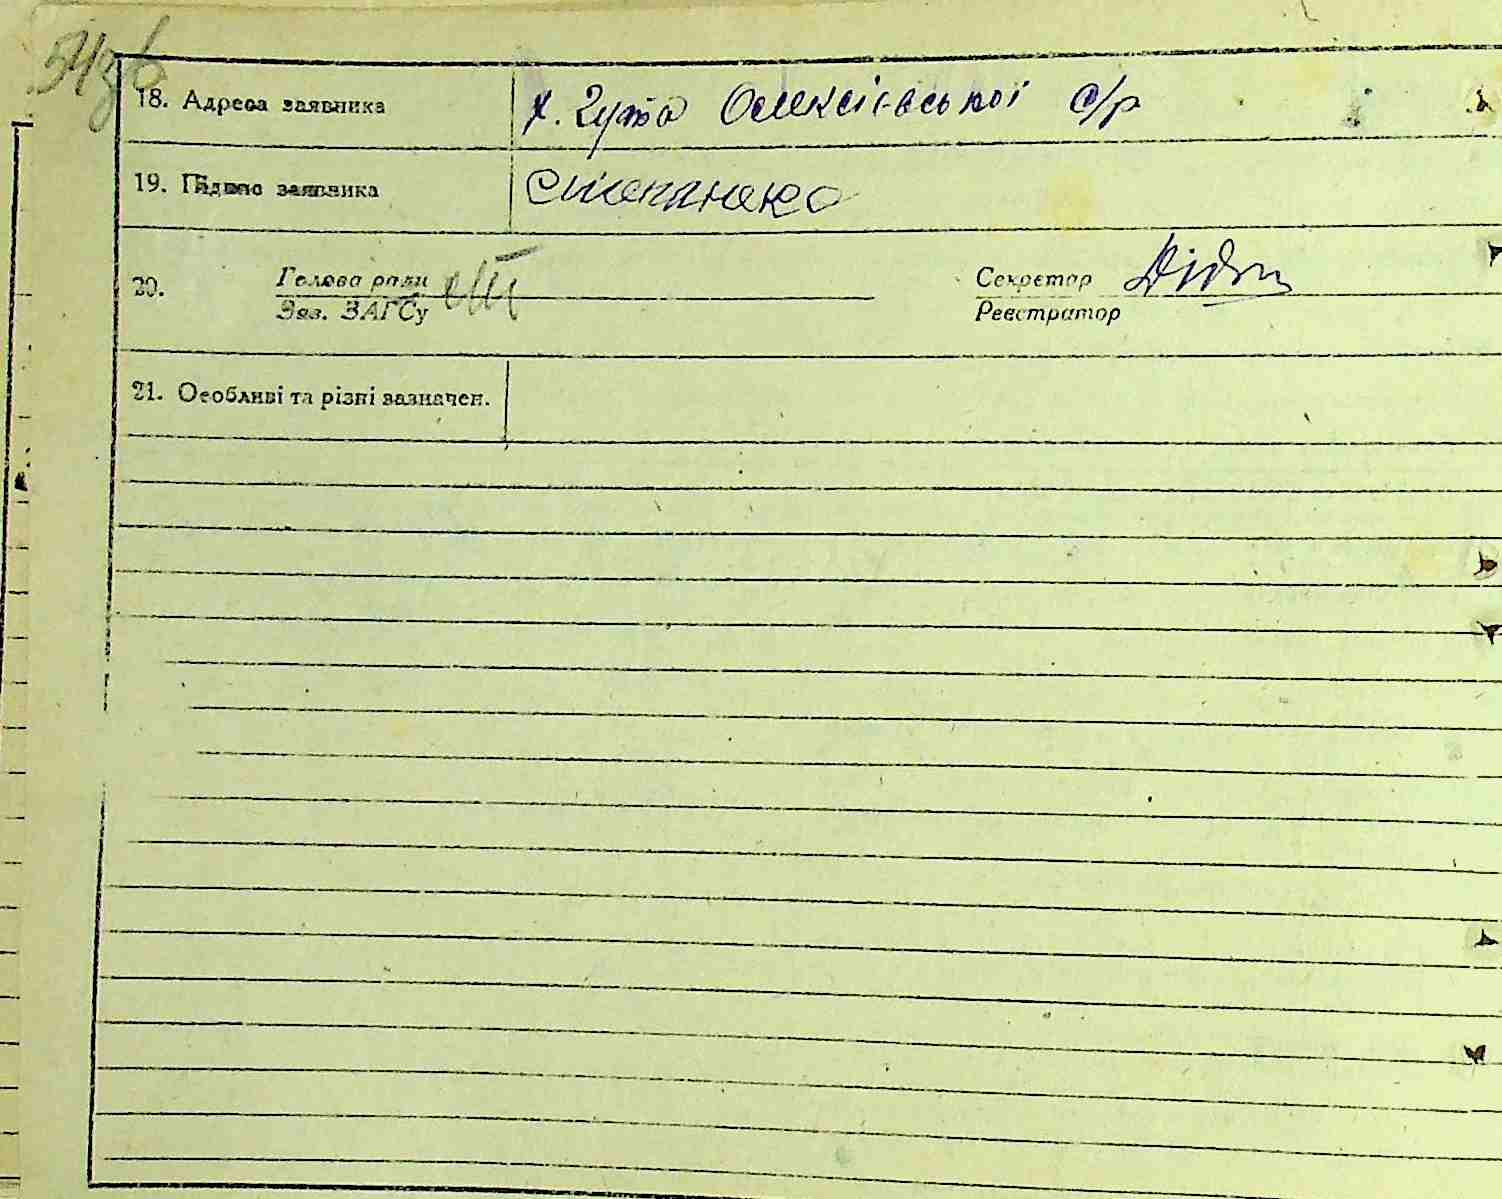 54зв
18. Адреса заявника х. Гута Олексіївської с/р
19. Підпис заявника Степаненко
20. Голова ради Секретар
Зав. ЗАГСу Реєстратор
21. Особливі та різні зазначен.